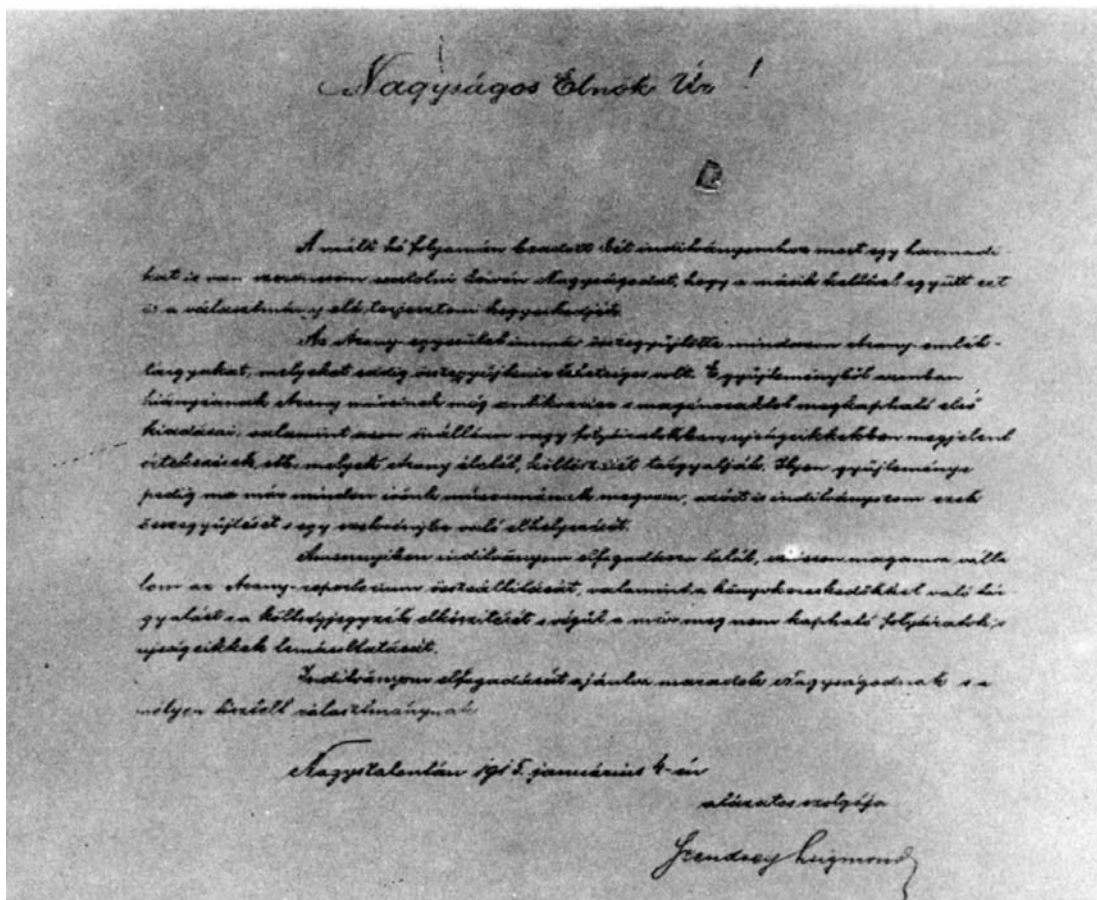 Nagyságos Elnök Úr!
A múlt hó folyamán beadott két indítványomhoz most egy harmadi-
kat is van szerencsém csatolni kérvén Nagyságodat, hogy a másik kettővel együtt ezt
is a választmány elé terjeszteni kegyeskedjék.
Az Arany-egyesület immár összegyűjtötte mindazon Arany-emlék-
tárgyakat, melyeket eddig összegyűjtenie lehetséges volt. E gyűjteményből azonban
hiányzanak Arany műveinek még antikvárius s magánosoktól megkapható első
kiadásai, valamint azon önállóan vagy folyóiratokban, ujságcikkekben megjelent
értekezések stb. melyek Arany életét, költészetét tárgyalják. Ilyen gyűjteménye
pedig ma már minden írónk múzeumának megvan, azért is indítványozom ezek
összegyűjtését s egy szekrénybe való elhelyezését.
Amennyiben indítványom elfogadásra talál, szívesen magamra válla
lom az Arany-repertorium összeállítását, valamint a könyvkereskedőkkel való tár
gyalást s a költségjegyzék elkészítését s végül a már meg nem kapható folyóiratok s
ujságcikkek lemásoltatását.
Indítványom elfogadását ajánlva maradok Nagyságodnak s a
mélyen tisztelt választmánynak
Nagyszalontán 1915. januárius 4-én
alázatos szolgája
Szendrey Zsigmond